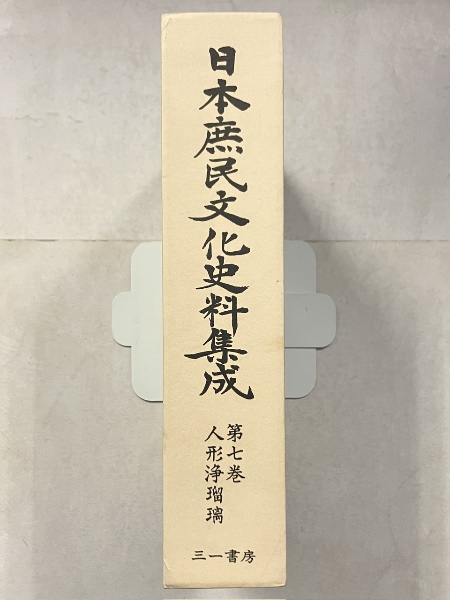 日本庶民文化史料集成
第七巻
人形浄瑠璃
三一書房